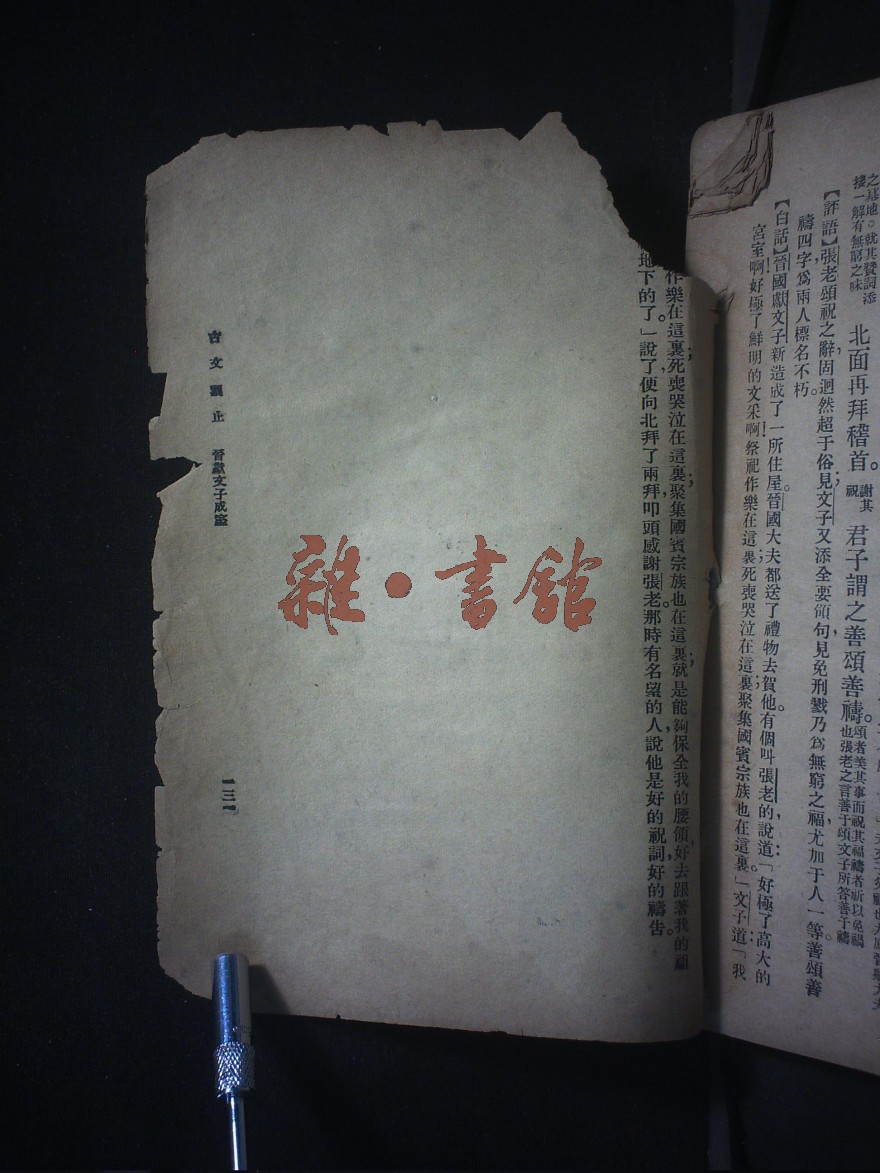 之墓地。就其贊詞添
接一解有無窮之味
北面再拜稽首。
謝其
祝
君子謂之善頌善禱。
頌者美其事而祝其福禱者祈以免禍
也張老之言善于頌文子所答善于禱
【評語】張老頌祝之辭固迥然超于俗見文子又添全要領句見免刑戮乃為無窮之福尤加于人一等善頌善
禱四字為兩人標名不朽。
【白話】晉國獻文子新造成了一所住屋。晉國大夫都送了禮物去賀他。有個叫張老的說道:「好極了高大的
宮室啊!好極了鮮明的文采啊!祭祀作樂在這裏;死喪哭泣在這裏;聚集國賓宗族也在這裏。」文子道:「我
作樂在這裏;死喪哭泣在這裏;聚集國賓宗族也在這裏;就是能夠保全我的腰領,好去跟著我的祖
地下的了。」說了,便向北拜了兩拜,叩頭感謝張老。那時有名望的人,說他是好的祝詞,好的禱告。
古文觀止 晉獻文子成室
一三一
雜·書館